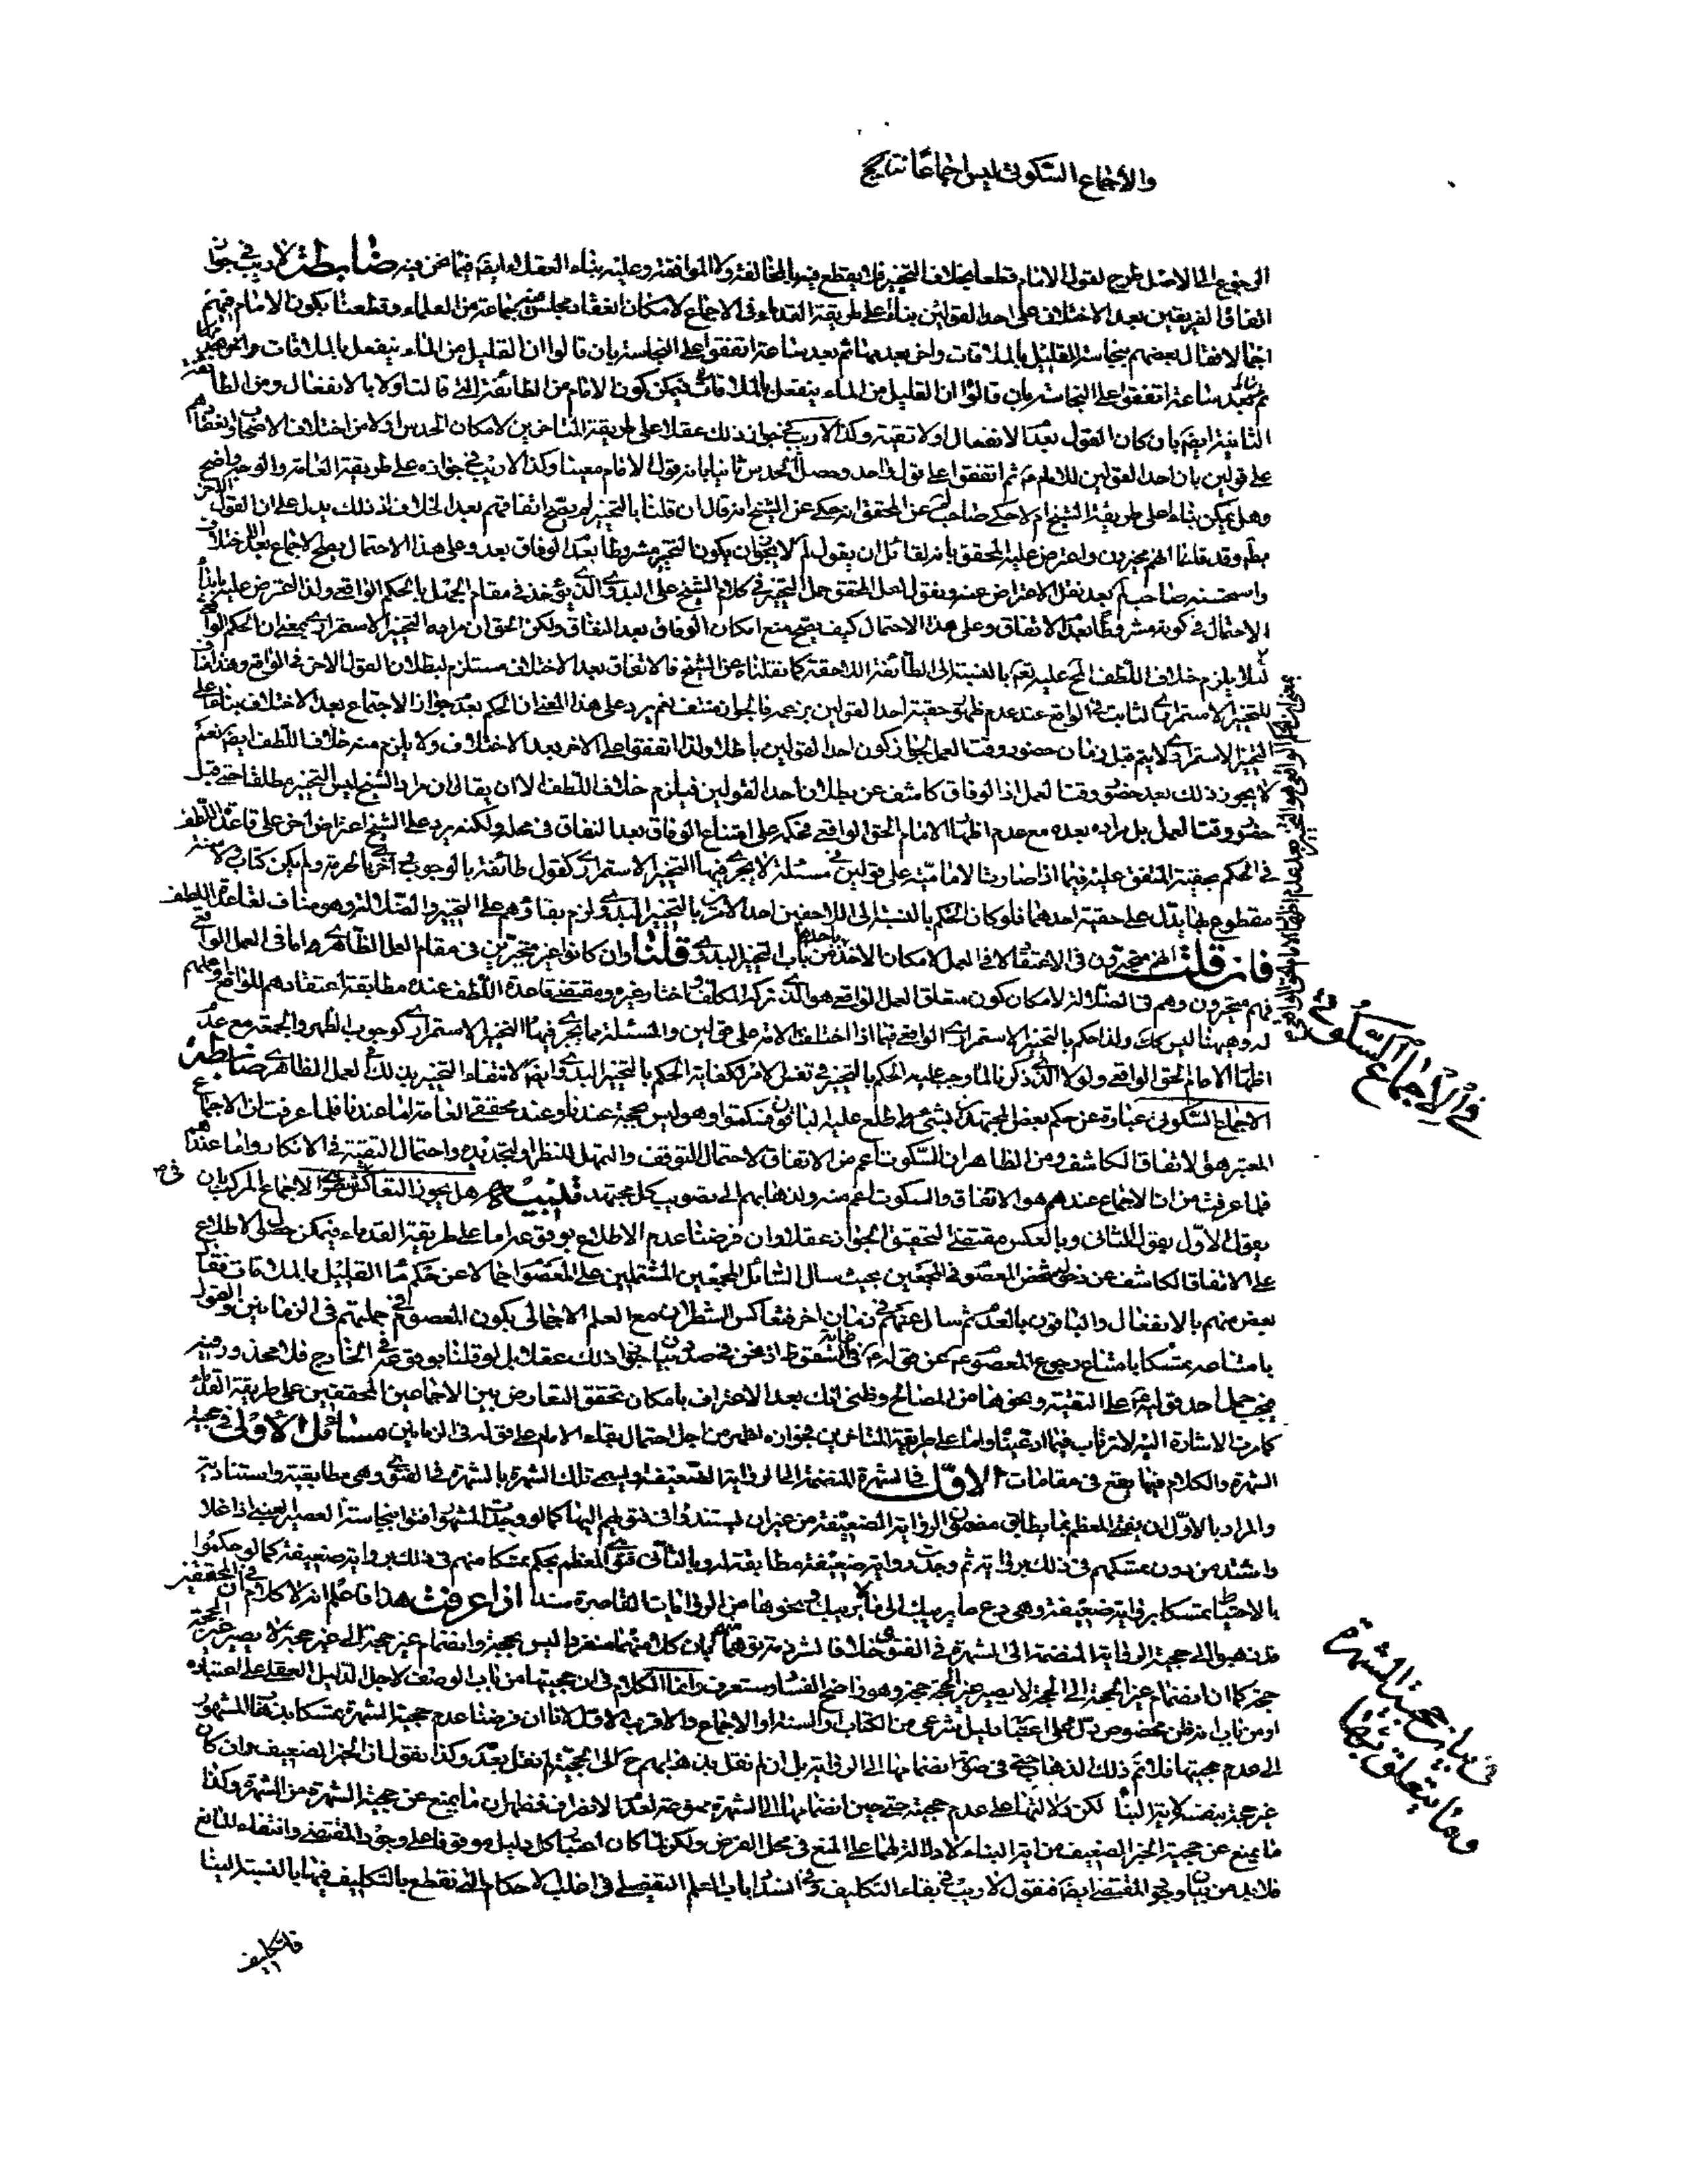 والاجماع السكوتى ليس اجماعا نتايج
الرجوع الى الاصل طرح لقول الامام قطعا بخلاف التخيير فلا يقطع فيه بالمخالفة ولا الموافقة وعليه بناء العقلاء ايضا فيما نحن فيه ضابطة لا ريب فى جواز
اتفاق الفريقين بعد الاختلاف على احد القولين بناء على طريقة القدماء فى الاجماع لامكان انعقاد مجلس جماعة من العلماء وقطعنا بكون الامام فيهم
اجمالا فقال بعضهم بنجاسة القليل بالملاقات واخر بعدمها ثم بعد ساعة اتفقوا على النجاسة بان قالوا ان القليل من الماء ينفعل بالملاقات
ثم بعد ساعة اتفقوا على النجاسة بان قالوا ان القليل من الماء ينفعل بالملاقات فيمكن كون الامام من الطائفة التى قالت اولا بالانفعال ومن الطائفة
الثانية ايضا بان كان القول بعدم الانفعال اولا تقية وكذا لا ريب فى جواز ذلك عقلا على طريقة المتاخرين لامكان الحدس اولا من اختلاف الاصحاب
على قولين بان احد القولين للامام ثم اتفقوا على قول واحد وحصل الحدس ثانيا بانه قول الامام معينا وكذا لا ريب فى جوازه على طريقة العامة والوجه واضح
وهل يمكن بناء على طريقة الشيخ ام لا حكى صاحب لم عن المحقق انه حكى عن الشيخ انه قال ان قلنا بالتخيير لم يصح اتفاقهم بعد الخلاف اذ ذلك يدل على ان القول الاخر
بط وقد قلنا انهم مخيرون واعترض عليه المحقق بانه لقائل ان يقول لم لا يجوز ان يكون التخيير مشروطا بعدم الوفاق بعد وعلى هذا الاحتمال يصح الاجماع بعد الاختلاف
واستحسنه صاحب لم بعد نقل الاعتراض عنه ونقول لعل المحقق حمل التخيير فى كلام الشيخ على البدوى الذى يؤخذ فى مقام الجهل بالحكم الواقعى ولذا اعترض عليه بابداء
الاحتمال فى كونه مشروطا بعدم الاتفاق وعلى هذا الاحتمال كيف يصح منع امكان الوفاق بعد النفاق ولكن الحق ان مراده التخيير الاستمرارى بمعنى ان الحكم الواقعى
لئلا يلزم خلاف اللطف الخ عليه نعم بالنسبة الى الطائفة اللاحقة كما نقلناه عن الشيخ فالاتفاق بعد الاختلاف مستلزم لبطلان القول الاخر فى الواقع وهذا مناف
للتخيير الاستمرارى الثابت فى الواقع عند عدم ظهور حقية احد القولين بزعمه فالجواز منتف نعم يرد على هذا المعنى ان الحكم بعدم جواز الاجتماع بعد الاختلاف بناء على
التخيير الاستمرارى لا يتم قبل زمان حضور وقت العمل لجواز كون احد القولين باطلا ولذا اتفقوا على الاخر بعد الاختلاف ولا يلزم منه خلاف اللطف ايضا نعم
لا يجوز ذلك بعد حضور وقت العمل اذ الوفاق كاشف عن بطلان احد القولين فيلزم خلاف اللطف الا ان يقال ان مراد الشيخ ليس التخيير مطلقا حتى قبل
حضور وقت العمل بل مراده بعده مع عدم اظهار الامام الحق الواقعى فحكمه على امتناع الوفاق بعد النفاق فى محله ولكنه يرد على الشيخ اعتراض اخر على قاعدة اللطف
فى الحكم بحقية المتفق عليه فيما اذا صارت الامامية على قولين فى مسئلة لا يجرى فيها التخيير الاستمرارى كقول طائفة بالوجوب واخرى بالحرمة ولم يكن كتاب ولا سنة
مقطوع بها يدل على حقية احدهما فلو كان الحكم بالنسبة الى اللاحقين احد الامرين بالتخيير البدوى لزم بقاؤهم على التحير والضلالة وهو مناف لقاعدة اللطف
فان قلت انهم متحيرون فى الاعتقاد لا فى العمل لامكان الاخذ باحدهما من باب التخيير البدوى قلنا وان كانوا غير متحيرين فى مقام العمل الظاهرى واما فى العمل الواقعى
فهم متحيرون وهم فى الضلالة لامكان كون متعلق العمل الواقعى هو الذى تركه المكلف واختار غيره ومقتضى قاعدة اللطف عنده مطابقة اعتقادهم للواقع وعملهم
له وهيهنا ليس كك ولذا حكم بالتخيير الاستمرارى الواقعى فيما اذا اختلف الامة على قولين والمسئلة مما يجرى فيها التخيير الاستمرارى كوجوب الظهر والجمعة مع عدم
اظهار الامام الحق الواقعى ولولا الذى ذكرنا لما وجب عليه الحكم بالتخيير فى نفس الامر لكفاية الحكم بالتخيير البدوى وايضا لانتفاء التخيير بذلك فى العمل الظاهرى ضابطة
الاجماع السكوتى عبارة عن حكم بعض المجتهدين بشىء واطلع عليه الباقون فسكتوا وهو ليس حجة عندنا وعند محققى العامة اما عندنا فلما عرفت ان الاجماع
المعتبر هو الاتفاق الكاشف ومن الظاهر ان السكوت اعم من الاتفاق لاحتمال التوقف والتمهل للنظر والتجديده واحتمال التقية فى الانكار واما عندهم
فلما عرفت من ان الاجماع عندهم هو الاتفاق والسكوت اعم منه ولذهابهم الى تصويب كل مجتهد تنبيه هل يجوز التعاكس فى شطرى الاجماع المركب بان
يقول الاول بقول الثانى وبالعكس مقتضى التحقيق الجواز عقلا وان فرضنا عدم الاطلاع بوقوعه اما على طريقة القدماء فيمكن حصول الاطلاع
على الاتفاق الكاشف عن دخول شخص المعصوم فى المجمعين بحيث سال السائل المجمعين المشتملين على المعصوم اجمالا عن حكم ماء القليل بالملاقات فقال
بعض منهم بالانفعال والباقون بالعدم ثم سال عنهم فى زمان اخر فتعاكس الشطران مع العلم الاجمالى بكون المعصوم فى جملتهم فى الزمانين والقول
بامتناعه تمسكا بامتناع رجوع المعصوم عن قوله فى غاية السقوط اذ نحن فى صدد بيان جواز ذلك عقلا بل لو قلنا بوقوعه فى الخارج فلا محذور فيه
فيجب حمل احد قوليه على التقية ونحوها من المصالح وظنى انك بعد الاعتراف بامكان تحقق التعارض بين الاجماعين المحققين على طريقة القدماء
كما مرت الاشارة اليه لا ترتاب فيما ادعيناه واما على طريقة المتاخرين فجوازه اظهر من اجل احتمال بقاء الامام على قوله فى الزمانين مسائل الاولى فى حجية
الشهرة والكلام فيها يقع فى مقامات الاول فى الشهرة المنضمة الى الرواية الضعيفة ويسمى تلك الشهرة بالشهرة فى الفتوى وهى مطابقية واستنادية
والمراد بالاول ان يفتى المعظم بما يطابق مضمون الرواية الضعيفة من غير ان يستندوا فى فتويهم اليها كما لو وجدت المشهور افتوا بنجاسة العصير العنبى اذا غلا
واشتد من دون تمسكهم فى ذلك برواية ثم وجدت رواية ضعيفة مطابقة له وبالثانى فتوى المعظم بحكم تمسكا منهم فى ذلك برواية ضعيفة كما لو حكموا
بالاحتياط تمسكا برواية ضعيفة وهى دع ما يريبك الى ما لا يريبك ونحوها من الروايات القاصرة سندا اذا عرفت هذا فاعلم انه لا كلام فى ان المحققين
قد ذهبوا الى حجية الرواية المنضمة الى الشهرة فى الفتوى خلافا لشرذمة توهما بان كلا منهما منفردا ليس بحجة وانضمام غير حجة الى غير حجة لا يصير غير الحجة
حجة كما ان انضمام غير الحجة الى الحجة لا يصير غير الحجة حجة وهو واضح الفساد وستعرف وانما الكلام فى ان حجيتها من باب الوصف لاجل الدليل العقلى على اعتباره
او من باب انه ظن مخصوص دل على اعتباره دليل شرعى من الكتاب او السنة او الاجماع والاقرب الاول لانا ان فرضنا عدم حجية الشهرة تمسكا بذهاب المشهور
الى عدم حجيتها فلا تم ذلك الذهاب حتى فى صورة انضمامها الى الرواية بل ان لم نقل بذهابهم ح الى الحجية لم نقل بعدمه وكذا نقول ان الخبر الضعيف وان كان
غير حجة بنفسه لاية النبأ لكن دلالتها على عدم حجيته حتى حين انضمامها الى الشهرة ممنوعة لعدم الانصراف فظهر ان ما يمنع عن حجية الشهرة من الشهرة وكذا
ما يمنع عن حجية الخبر الضعيف من اية البناء لا دلالة لهما على المنع فى محل الفرض ولكن لما كان اعتبار كل دليل موقوفا على وجود المقتضى وانتفاء المانع
فلابد من بيان وجود المقتضى ايضا فنقول لا ريب فى بقاء التكليف وفى انسداد باب العلم التفصيلى فى اغلب الاحكام التى نقطع بالتكليف فيها بالنسبة الينا
فالتكليف
فى الاجماع السكوتى
فى بيان حجية الشهرة
وما يتعلق بها